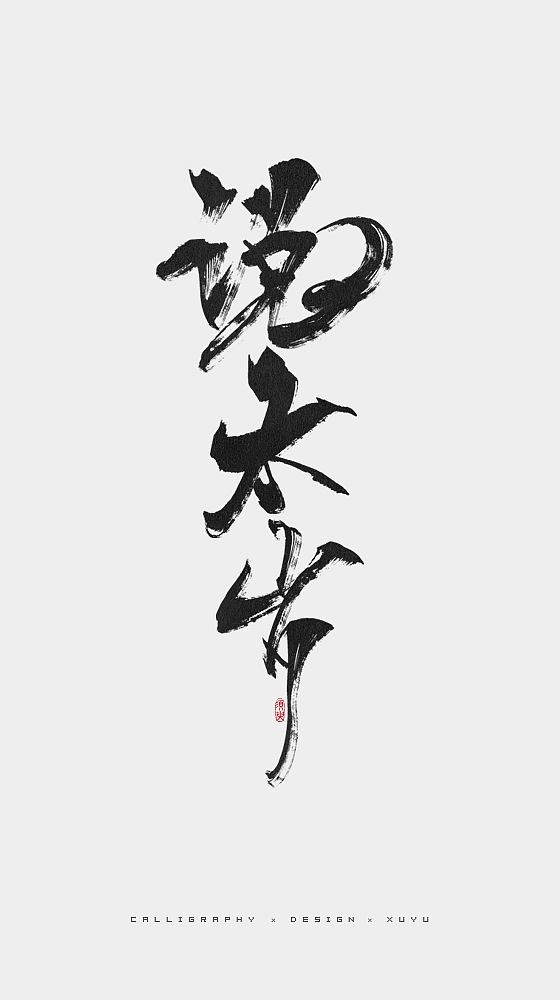 说木
CALLIGRAPHY × DESIGN × XUYU